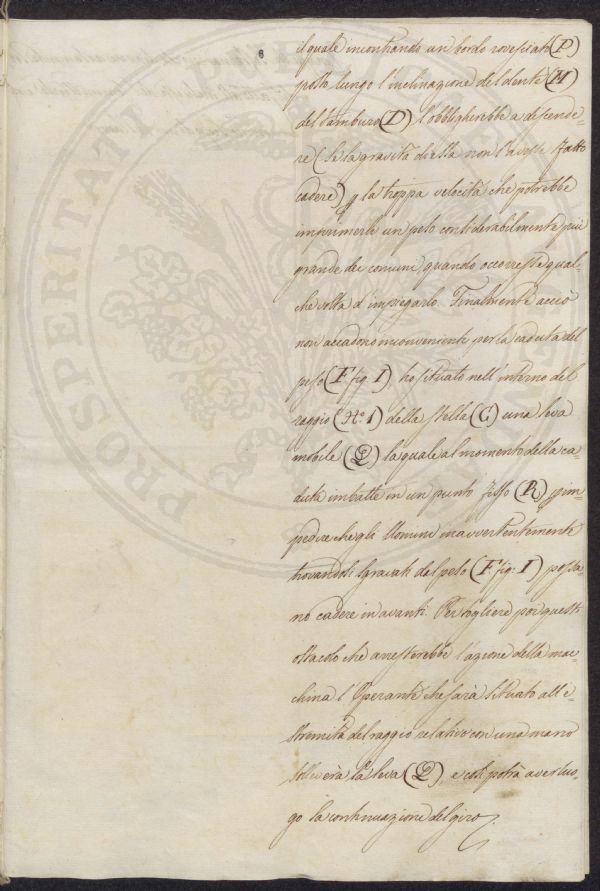 6
il quale incontrando un bordo rovesciato (P)
posto lungo l'inclinazione del dente (M)
del tamburo (D) l'obbligherebbe a discende=
re (se la gravità di ella non l'avesse fatto
cadere) p la troppa velocità che potrebbe
imprimerle un peso considerabilmente più
grande dei comuni quando occorresse qual=
che volta d'impiegarlo. Finalmente acciò
non accadono inconvenienti per la caduta del
peso (F fig. I), ho situato nell'interno del
raggio (N.º 1) della stella (C) una leva
mobile (Q) la quale al momento della ca=
duta imbatte in un punto fisso (R) p im=
pedire che gli Uomini inavvertentemente
trovandosi sgravati dal peso (F fig: I) possa=
no cadere in avanti. Per togliere poi questi
ostacolo che arresterebbe l'azione della mac=
china l'Operante che sarà situato all'e=
stremità del raggio relativo con una mano
solleverà la leva (Q), e così potrà aver luo=
go la continuazione del giro.
PROSPERITATI PUBLICAE